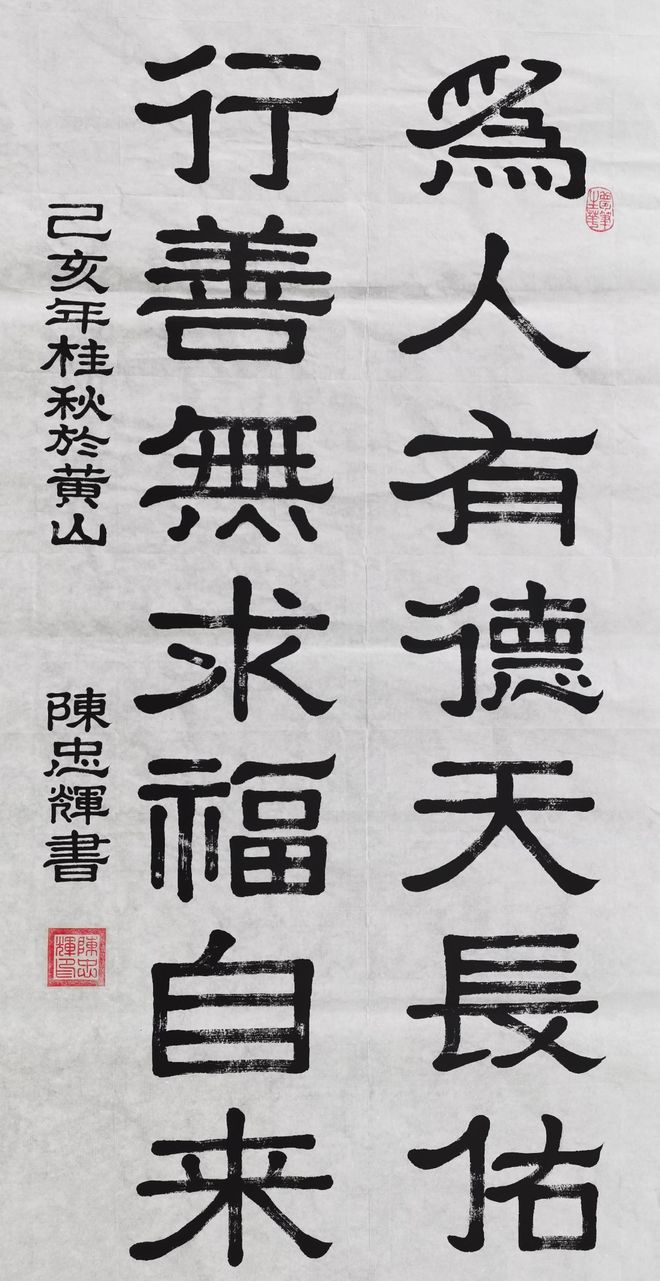 為人有德天長佑
行善無求福自来
己亥年桂秋於黄山
陳忠輝書
陳忠輝印